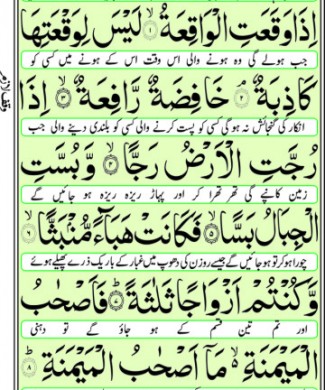 اِذَا وَقَعَتِ الْوَاقِعَةُ ۙ﴿۱﴾ لَیْسَ لِوَقْعَتِهَا
جب ہولے گی وہ ہونے والی اس وقت اس کے ہونے میں کسی کو
كَاذِبَةٌ ۘ﴿۲﴾ خَافِضَةٌ رَّافِعَةٌ ۙ﴿۳﴾ اِذَا
انکار کی گنجائش نہ ہوگی کسی کو پست کرنے والی کسی کو بلندی دینے والی جب
رُجَّتِ الْاَرْضُ رَجًّا ۙ﴿۴﴾ وَّ بُسَّتِ
زمین کانپے گی تھر تھرا کر اور پہاڑ ریزہ ریزہ ہو جائیں گے
الْجِبَالُ بَسًّا ۙ﴿۵﴾ فَكَانَتْ هَبَآءً مُّنْۢبَثًّا ۙ﴿۶﴾
چورا ہوکر تو ہو جائیں گے جیسے روزن کی دھوپ میں غبار کے باریک ذرے پھیلے ہوئے
وَّ كُنْتُمْ اَزْوَاجًا ثَلٰثَةً ؕ﴿۷﴾ فَاَصْحٰبُ
اور تم تین قسم کے ہو جاؤ گے تو دہنی
الْمَیْمَنَةِ ۙ۬ مَاۤ اَصْحٰبُ الْمَیْمَنَةِ ؕ﴿۸﴾
وقف لازم